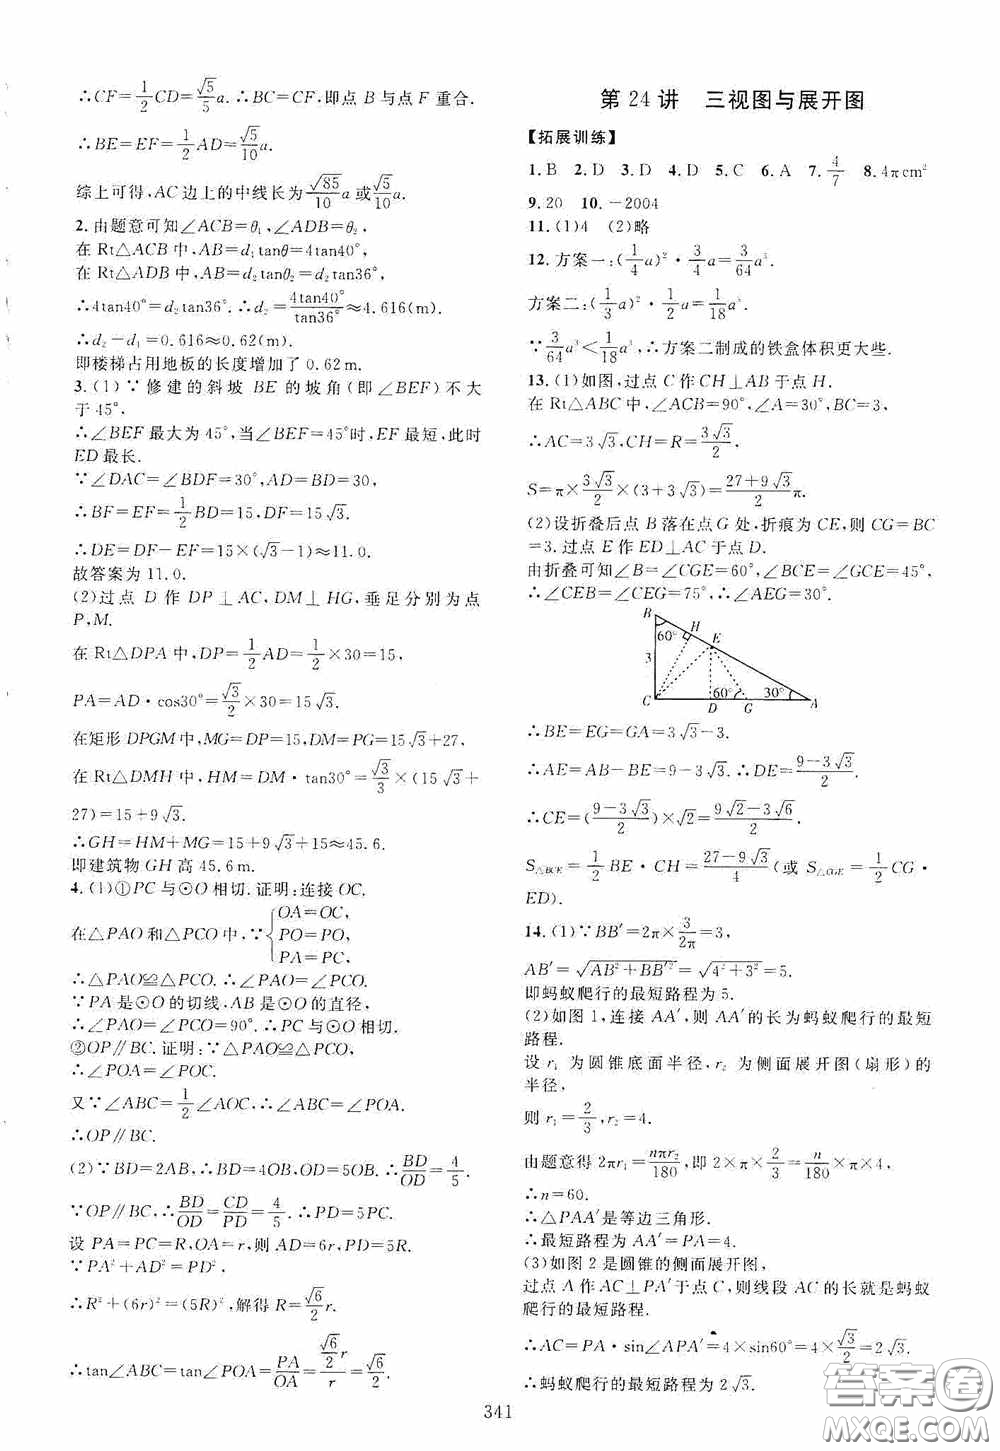 ∴CF=1/2CD=√5/5a.∴BC=CF,即点 B 与点 F 重合.
∴BE=EF=1/2AD=√5/10a.
综上可得,AC 边上的中线长为√85/10a 或√5/10a.
2.由题意可知∠ACB=θ₁,∠ADB=θ₂.
在 Rt△ACB 中,AB=d₁tanθ=4tan40°,
在 Rt△ADB 中,AB=d₂tanθ₂=d₂tan36°.
∴4tan40°=d₂tan36°.∴d₂=4tan40°/tan36°≈4.616(m).
∴d₂-d₁=0.616≈0.62(m).
即楼梯占用地板的长度增加了 0.62m.
3.(1)∵修建的斜坡 BE 的坡角(即∠BEF)不大
于 45°,
∴∠BEF 最大为 45°,当∠BEF=45°时,EF 最短,此时
ED 最长.
∵∠DAC=∠BDF=30°,AD=BD=30,
∴BF=EF=1/2BD=15,DF=15√3.
∴DE=DF-EF=15×(√3-1)≈11.0.
故答案为 11.0.
(2)过点 D 作 DP⊥AC,DM⊥HG,垂足分别为点
P,M.
在 Rt△DPA 中,DP=1/2AD=1/2×30=15,
PA=AD·cos30°=√3/2×30=15√3.
在矩形 DPGM 中,MG=DP=15,DM=PG=15√3+27,
在 Rt△DMH 中,HM=DM·tan30°=√3/3×(15√3+
27)=15+9√3.
∴GH=HM+MG=15+9√3+15≈45.6.
即建筑物 GH 高 45.6m.
4.(1)①PC 与⊙O 相切.证明:连接 OC.
在△PAO 和△PCO 中,∵{OA=OC,
PO=PO,
PA=PC,
∴△PAO≌△PCO.∴∠PAO=∠PCO.
∵PA 是⊙O 的切线,AB 是⊙O 的直径,
∴∠PAO=∠PCO=90°.∴PC 与⊙O 相切.
②OP∥BC.证明:∵△PAO≌△PCO,
∴∠POA=∠POC.
又∵∠ABC=1/2∠AOC,∴∠ABC=∠POA.
∴OP∥BC.
(2)∵BD=2AB,∴BD=4OB,OD=5OB.∴BD/OD=4/5.
∵OP∥BC,∴BD/OD=CD/PD=4/5.∴PD=5PC.
设 PA=PC=R,OA=r,则 AD=6r,PD=5R.
∵PA²+AD²=PD²,
∴R²+(6r)²=(5R)²,解得 R=√6/2r.
∴tan∠ABC=tan∠POA=PA/OA=(√6/2r)/r=√6/2.
第 24 讲 三视图与展开图
【拓展训练】
1.B 2.D 3.D 4.D 5.C 6.A 7.4/7 8.4πcm²
9.20 10.-2004
11.(1)4 (2)略
12.方案一:(1/4a)²·3/4a=3/64a³.
方案二:(1/3a)²·1/2a=1/18a³.
∵3/64a³<1/18a³,∴方案二制成的铁盒体积更大些.
13.(1)如图,过点 C 作 CH⊥AB 于点 H.
在 Rt△ABC 中,∠ACB=90°,∠A=30°,BC=3,
∴AC=3√3,CH=R=3√3/2.
S=π×3√3/2×(3+3√3)=27+9√3/2π.
(2)设折叠后点 B 落在点 G 处,折痕为 CE,则 CG=BC
=3.过点 E 作 ED⊥AC 于点 D.
由折叠可知∠B=∠CGE=60°,∠BCE=∠GCE=45°,
∴∠CEB=∠CEG=75°,∴∠AEG=30°.
B H E 60° 3 60° 30° C D G A
∴BE=EG=GA=3√3-3.
∴AE=AB-BE=9-3√3.∴DE=9-3√3/2.
∴CE=(9-3√3/2)×√2=9√2-3√6/2.
S△BCE=1/2BE·CH=27-9√3/4(或 S△CGE=1/2CG·
ED).
14.(1)∵BB′=2π×3/2π=3,
AB′=√AB²+BB′²=√4²+3²=5.
即蚂蚁爬行的最短路程为 5.
(2)如图 1,连接 AA′,则 AA′的长为蚂蚁爬行的最短
路程.
设 r₁ 为圆锥底面半径,r₂ 为侧面展开图(扇形)的
半径,
则 r₁=2/3,r₂=4.
由题意得 2πr₁=nπr₂/180,即 2×π×2/3=n/180×π×4,
∴n=60.
∴△PAA′是等边三角形.
∴最短路程为 AA′=PA=4.
(3)如图 2 是圆锥的侧面展开图,
过点 A 作 AC⊥PA′于点 C,则线段 AC 的长就是蚂蚁
爬行的最短路程.
∴AC=PA·sin∠APA′=4×sin60°=4×√3/2=2√3.
∴蚂蚁爬行的最短路程为 2√3.
341
答案圈
MXQE.COM